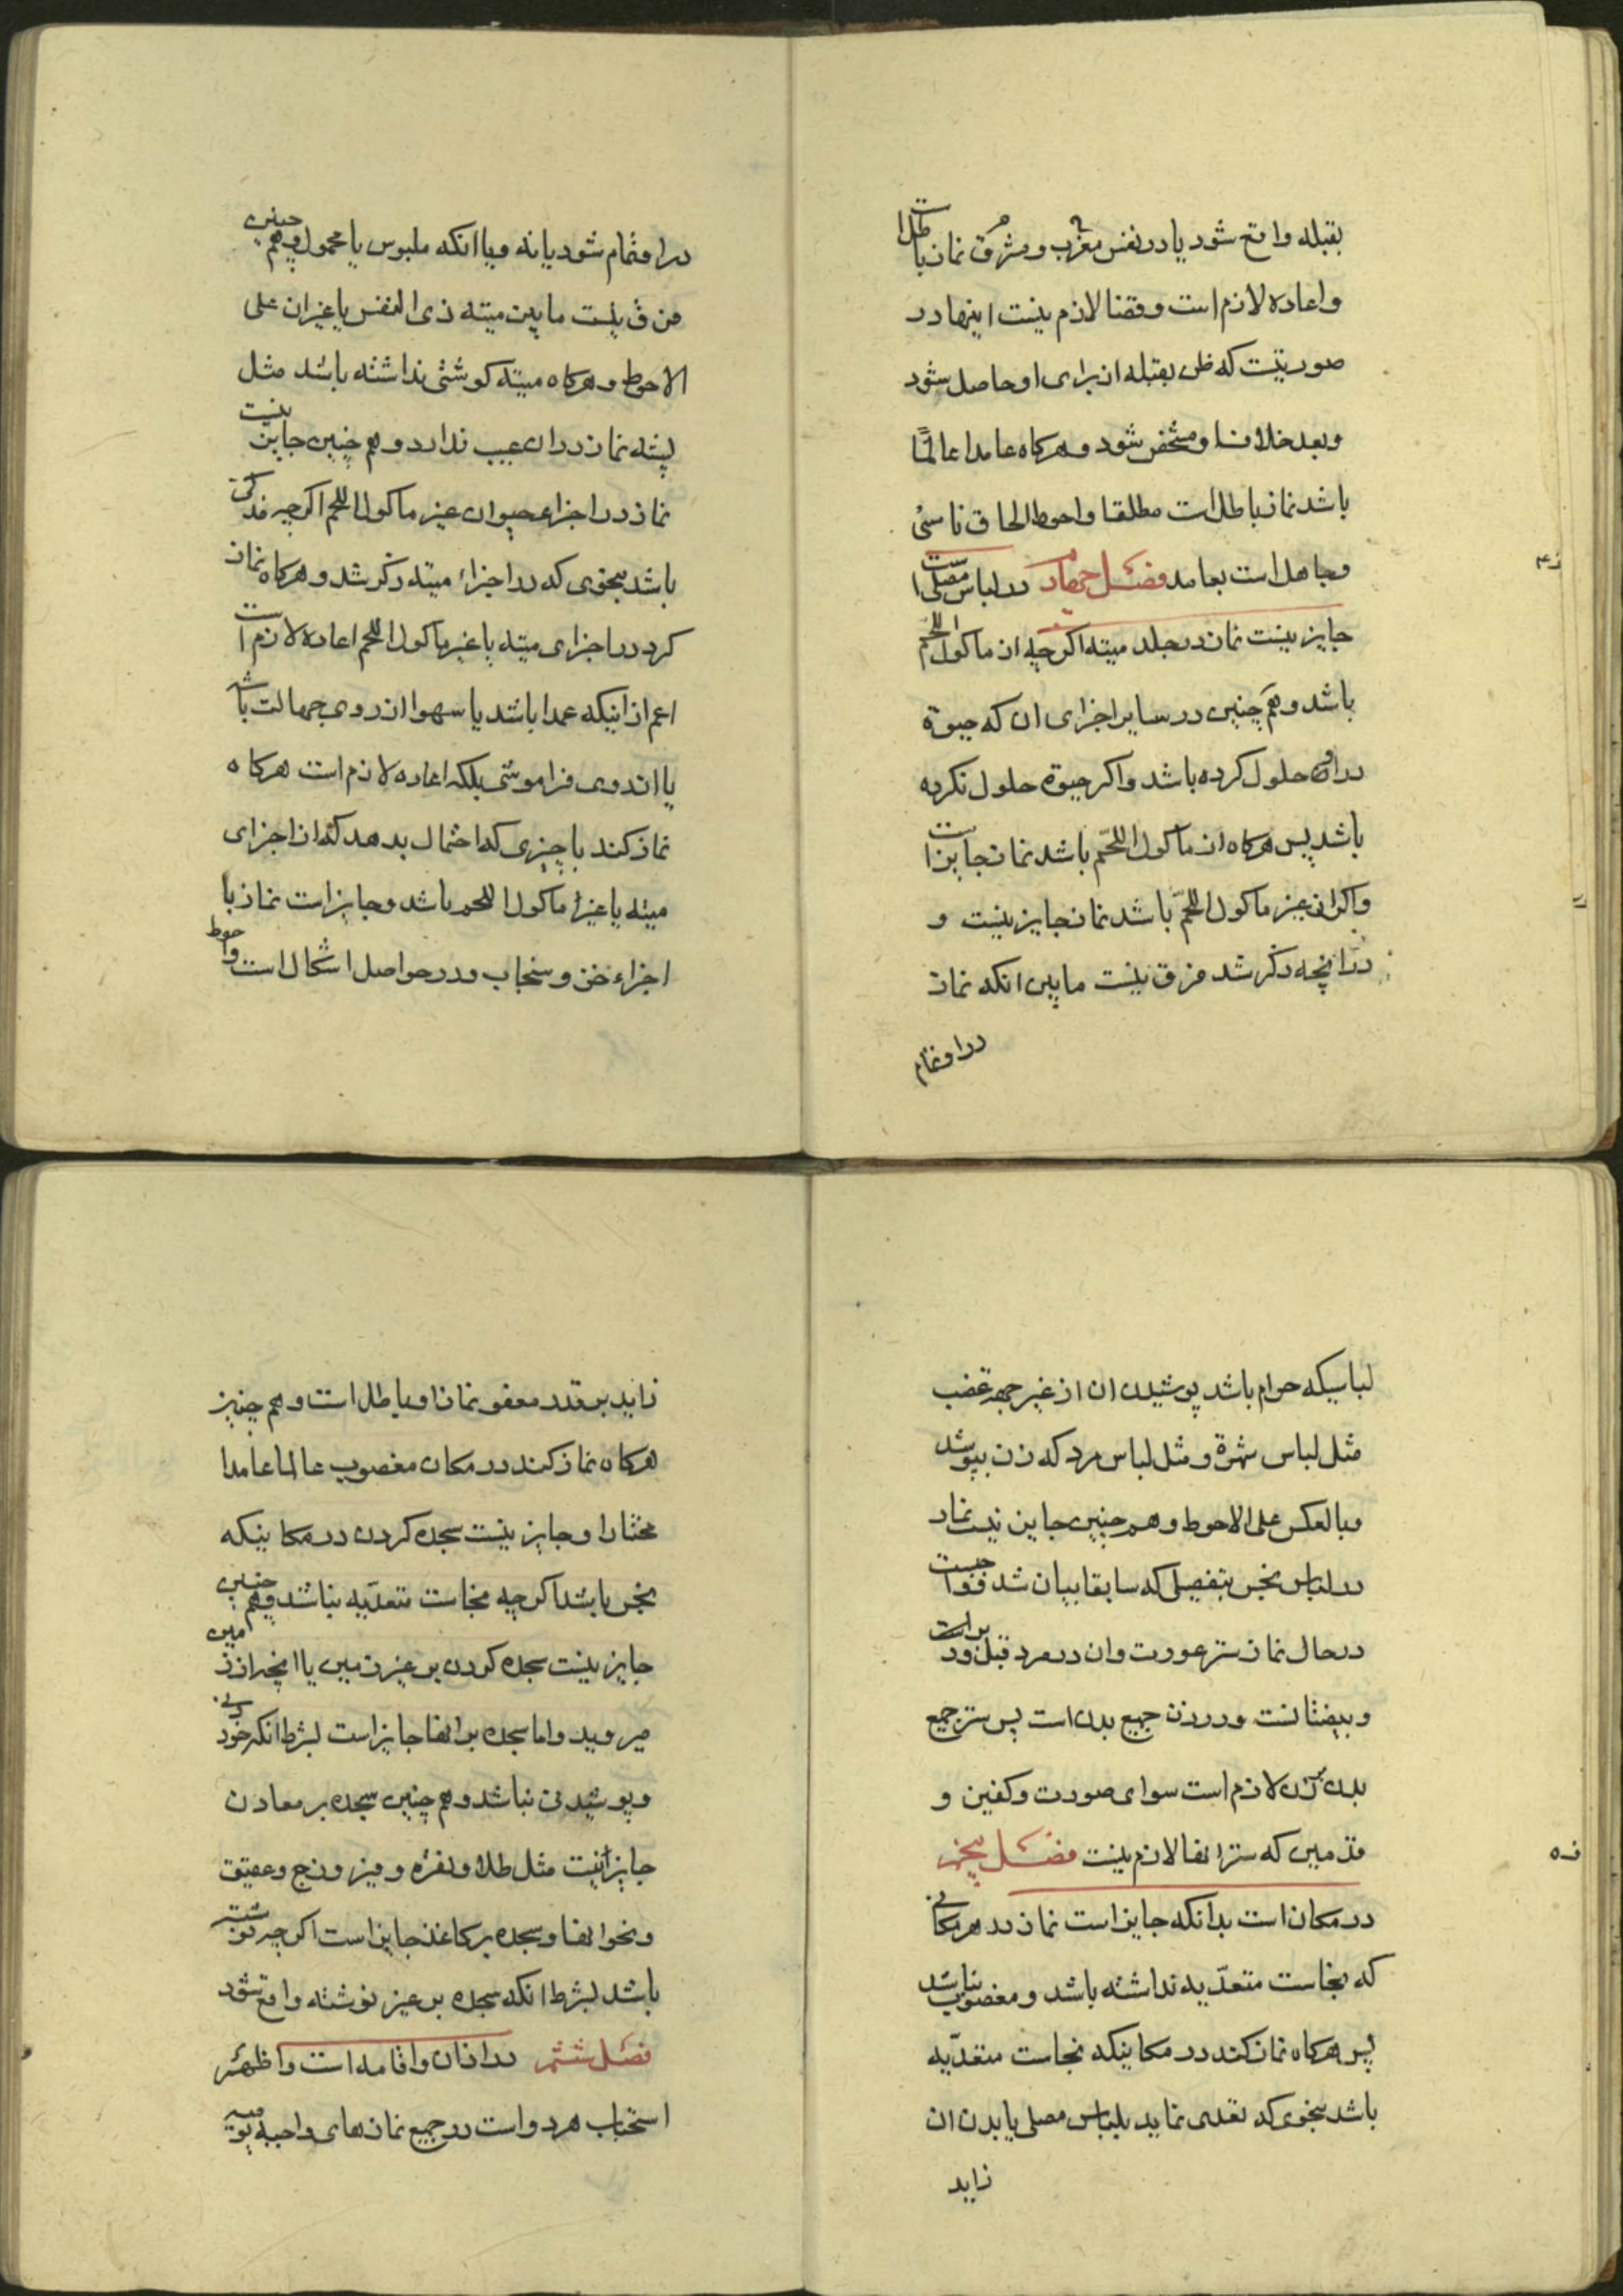 بقبله واقع شود یا در نفس مغرب و مشرق نماز باطل است
واعاده لازم است وقضا لازم نیست اینها در
صورتیست که ظن بقبله از برای او حاصل شود
وبعد خلاف او مشخص شود وهرکاه عامدا عالمًا
باشد نماز باطل است مطلقا واحوط الحاق ناسی
وجاهل است بعامد فصل چهارم در لباس مصلی است
جایز نیست نماز در جلد میته اکرچه از ماکول اللحم
باشد وهم چنین در سایر اجزای ان که حیوة
در ان حلول کرده باشد واکر حیوة حلول نکرده
باشد پس هرکاه از ماکول اللحّم باشد نماز جایز است
واکر از غیر ماکول اللحّم باشد نماز جایز نیست و
در انچه ذکر شد فرق نیست مابین انکه نماز
در او تمام
در او تمام شود یا نه ویا انکه ملبوس یا محمول وهم چنین
فرق نیست مابین میته ذی النفس یا غیر ان علی
الاحوط وهرکاه میته کوشتی نداشته باشد مثل
پشه نماز در ان عیب ندارد وهم چنین جایز نیست
نماز در اجزاء حیوان غیر ماکول اللحم اکرچه مذکی
باشد بنحوی که در اجزاء میته ذکر شد وهرکاه نماز
کرد در اجزای میته یا غیر ماکول اللحم اعاده لازم است
اعم از اینکه عمدا باشد یا سهوا از روی جهالت باشد
یا از روی فراموشی بلکه اعاده لازم است هرکاه
نماز کند با چیزی که احتمال بدهد که از اجزای
میته یا غیر ماکول اللحم باشد وجایز است نماز با
اجزاء خز وسنجاب ودر حواصل اشکال است واحوط
لباسیکه حرام باشد پوشیدن ان از غیر جهة غصب
مثل لباس شهرة ومثل لباس مرد که زن بپوشد
وبالعکس علی الاحوط وهم چنین جایز نیست نماز
در لباس نجس بتفصیلی که سابقا بیان شد
در حال نماز ستر عورت وان در مرد قبل ودبر است
وبیضتانست ودر زن جمیع بدن است پس ستر جمیع
بدن بر زن لازم است سوای صورت وکفین و
قدمین که ستر انها لازم نیست فصل پنجم
در مکان است بدانکه جایز است نماز در هر مکانی
که نجاست متعدّیه نداشته باشد ومغصوب نباشد
پس هرکاه نماز کند در مکانیکه نجاست متعدّیه
باشد بنحوی که تعدی نماید بلباس مصلی یا بدن ان
زاید
زاید بر قدر معفو نماز او باطل است وهم چنین
هرکاه نماز کند در مکان مغصوب عالما عامدا
مختارا وجایز نیست سجده کردن در مکانیکه
نجس باشد اکرچه نجاست متعدّیه نباشد وهم چنین
جایز نیست سجده کردن بر غیر زمین یا انچه از زمین
میروید واما سجده بر انها جایز است بشرط انکه خوردنی
وپوشیدنی نباشد وهم چنین سجده بر معادن
جایز نیست مثل طلا ونقره وفیروزج وعقیق
ونحو انها وسجده بر کاغذ جایز است اکرچه نوشته
باشد بشرط انکه سجده بر غیر نوشته واقع شود
فصل ششم در اذان واقامه است واظهر
استحباب هر دو است در جمیع نمازهای واجبه یومیه